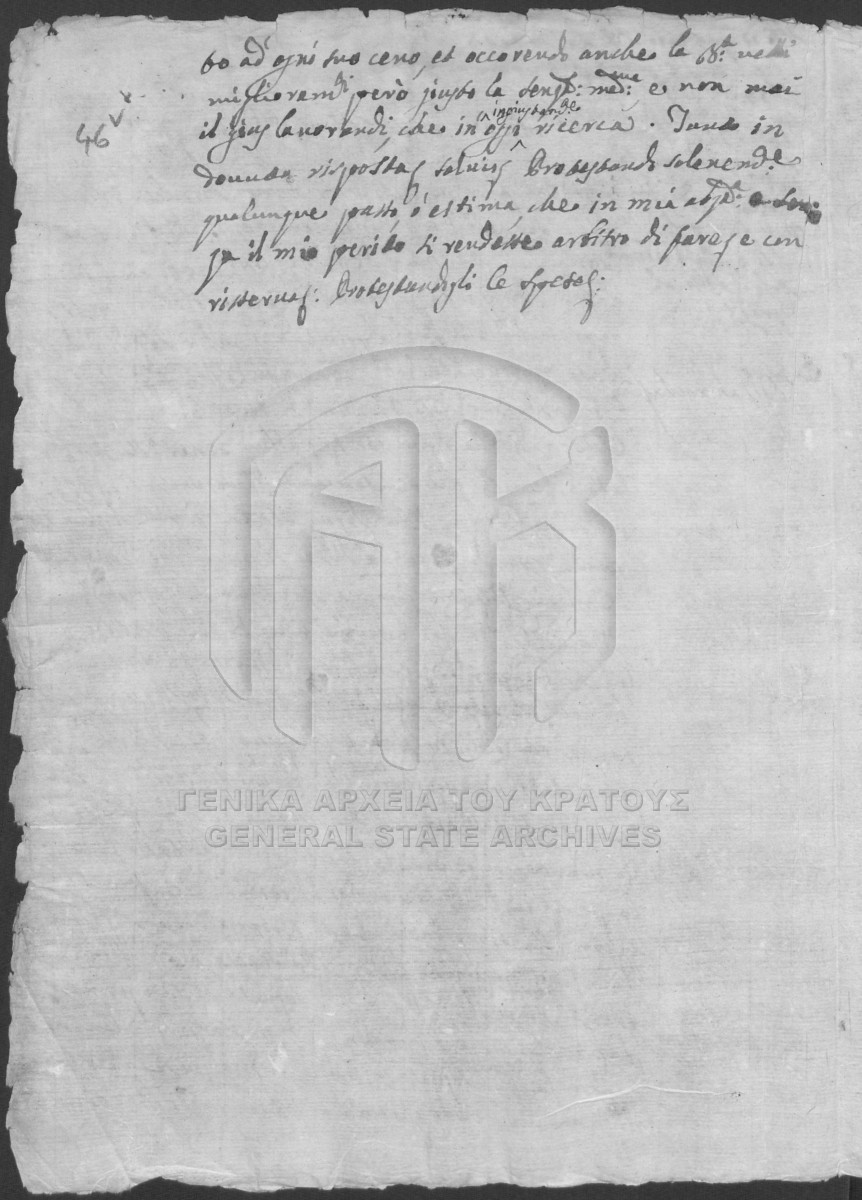 to ad ogni suo ceno, et occorendo anche la
migliorandi però giusto la Sent: med: e non mai
il gius lauorandi, che in oggi ingiustam.e ricerca. Tanto in
douuta risposta saluis Protestando solenem.e
qualunque passo, ó estima, che in mia absª: o Sen:
za il mio perito si rendesse arbitro di farese con
risserua: Protestandogli le Spese:
46
ΓΕΝΙΚΑ ΑΡΧΕΙΑ ΤΟΥ ΚΡΑΤΟΥΣ
GENERAL STATE ARCHIVES